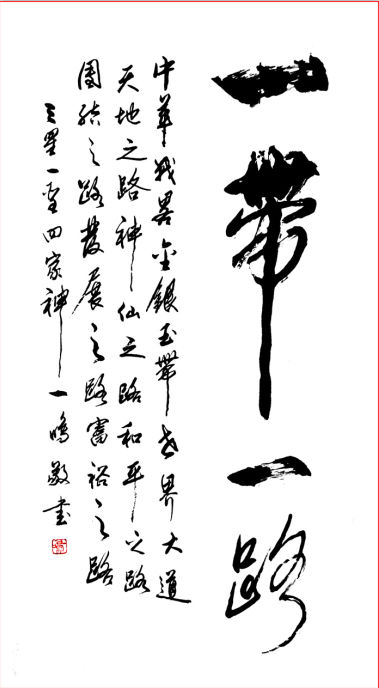 一帶一路
中華戰畧金銀玉帶世界大道
天地之路神仙之路和平之路
團結之路發展之路富裕之路
星一四家神一鳴敬書